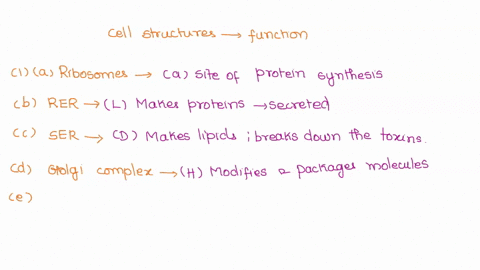 cell structures → function
(1)(a) Ribosomes → (a) site of protein synthesis
(b) RER → (L) Makes proteins → secreted
(c) SER → (D) Makes lipids ; breaks down the toxins.
(d) Golgi complex → (H) Modifies & packages molecules
(e)